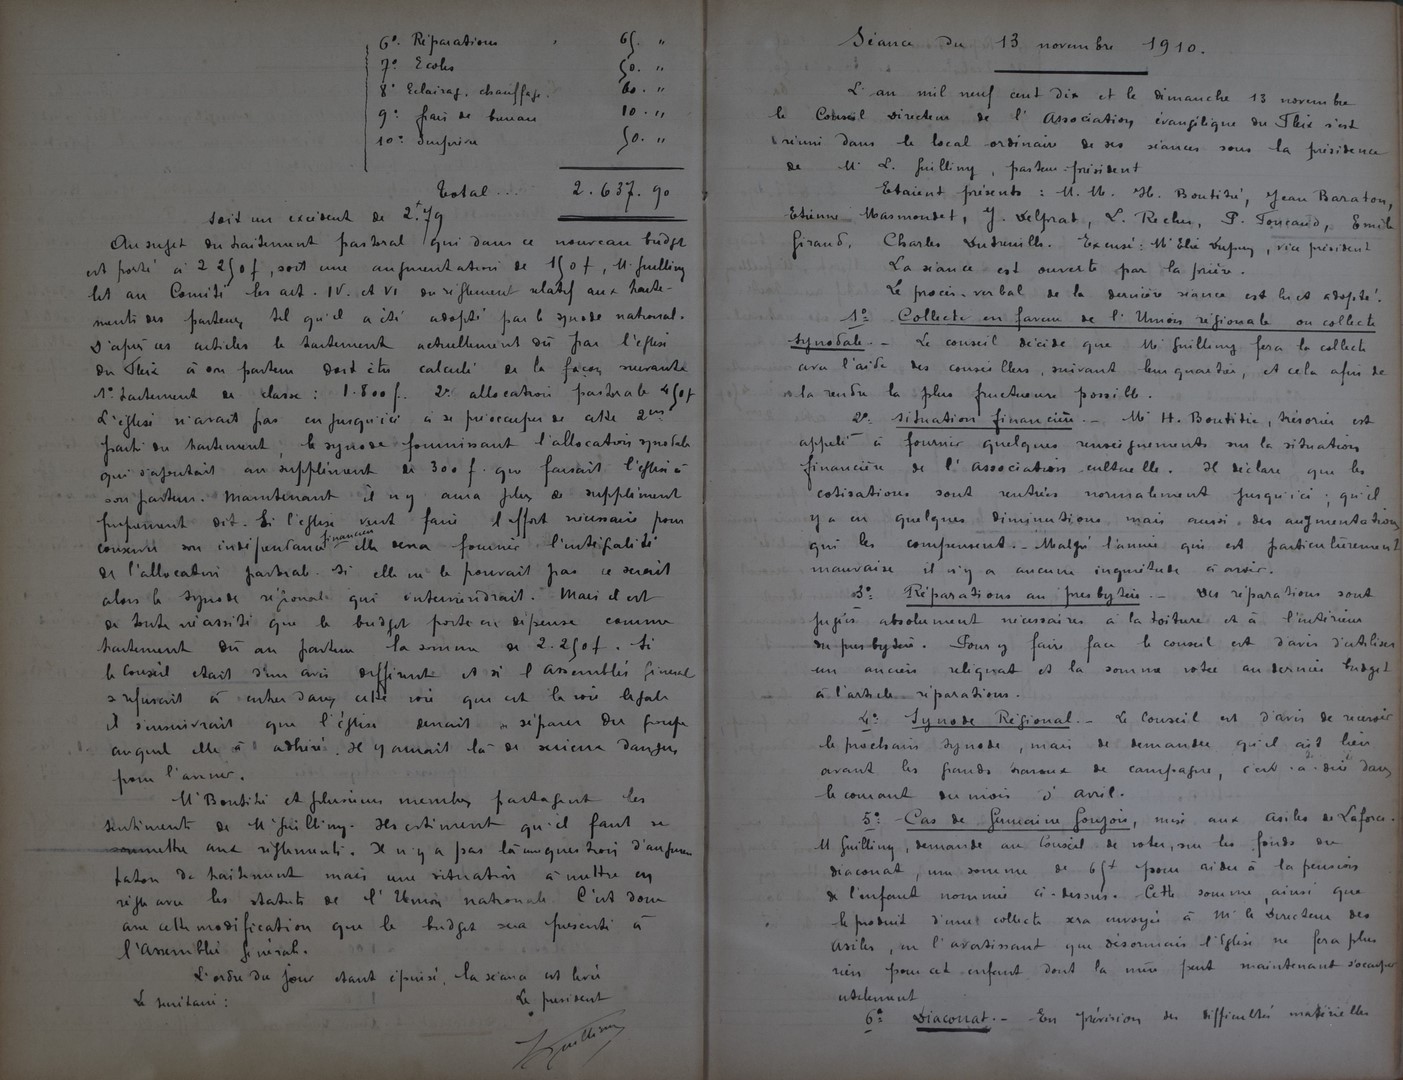 6º. Réparations 65. "
7º Ecoles 50. "
8º Eclairag. chauffage. 60. "
9º frais de bureau 10. "
10º Imprévu 50. "
Total... 2.637.90
soit un excédent de 2f.79
Au sujet du traitement pastoral qui dans ce nouveau budget
est porté à 2250f, soit une augmentation de 150f, M. Guilling
lit au Comité les art. IV. et VI du règlement relatif aux traite-
ments des pasteurs tel qu'il a été adopté par le synode national.
D'après ces articles le traitement actuellement dû par l'église
du Fleix à son pasteur doit être calculé de la façon suivante
1º traitement de classe : 1.800 f. 2º allocation pastorale 450f
L'église n'avait pas eu jusqu'ici à se préoccuper de cette 2me
partie du traitement, le synode fournissant l'allocation synodale
qui s'ajoutait au supplément de 300 f. que faisait l'église à
son pasteur. Maintenant il n'y aura plus de supplément
proprement dit. Si l'église veut faire l'effort nécessaire pour
conserver son indépendance financière elle devra fournir l'intégralité
de l'allocation pastorale. Si elle ne le pouvait pas ce serait
alors le synode régional qui interviendrait. Mais il est
de toute nécessité que le budget porte en dépense comme
traitement dû au pasteur la somme de 2.250f. Si
le Conseil était d'un avis différent et si l'Assemblée Générale
se refusait à entrer dans cette voie qui est la voie légale
il s'ensuivrait que l'église devrait se séparer du groupe
auquel elle a adhéré. Il y aurait là de sérieux dangers
pour l'avenir.
M. Boutitié et plusieurs membres partagent les
sentiments de M. Guilling. Ils estiment qu'il faut se
soumettre aux règlements. Il n'y a pas là une question d'augmen
tation de traitement mais une situation à mettre en
règle avec les statuts de l'Union nationale. C'est donc
avec cette modification que le budget sera présenté à
l'Assemblée générale.
L'ordre du jour étant épuisé, la séance est levée
Le secrétaire : Le président
Guilling
Séance du 13 novembre 1910.
L'an mil neuf cent dix et le dimanche 13 novembre
le Conseil Directeur de l'Association évangélique du Fleix s'est
réuni dans le local ordinaire de ses séances sous la présidence
de M. L. Guilling, pasteur-président
Etaient présents : M. M. H. Boutitié, Jean Baraton,
Etienne Masmondet, J. Delprat, L. Rocher, P. Foucaud, Emile
Giraud, Charles Dutreuille. Excusé : M. Elie Dupuy, vice président
La séance est ouverte par la prière.
Le procès-verbal de la dernière séance est lu et adopté.
1º Collecte en faveur de l'Union régionale ou collecte
synodale. - Le conseil décide que M. Guilling fera la collecte
avec l'aide des conseillers, suivant leur quartier, et cela afin de
la rendre la plus fructueuse possible.
2º Situation financière. - M. H. Boutitié, trésorier est
appelé à fournir quelques renseignements sur la situation
financière de l'Association cultuelle. Il déclare que les
cotisations sont rentrées normalement jusqu'ici ; qu'il
y a eu quelques diminutions mais aussi des augmentations
qui les compensent. - Malgré l'année qui est particulièrement
mauvaise il n'y a aucune inquiétude à avoir.
3º Réparations au presbytère. - Des réparations sont
jugées absolument nécessaires à la toiture et à l'intérieur
du presbytère. Pour y faire face le conseil est d'avis d'utiliser
un ancien reliquat et la somme votée au dernier budget
à l'article réparations.
4º Synode Régional. - Le Conseil est d'avis de recevoir
le prochain synode, mais de demander qu'il ait lieu
avant les grands travaux de campagne, c'est-à-dire dans
le courant du mois d'avril.
5º Cas de Germaine Goujois, mise aux asiles de Laforce.
M. Guilling, demande au Conseil de voter, sur les fonds du
diaconat, une somme de 65f pour aider à la pension
de l'enfant nommée ci-dessus. Cette somme, ainsi que
le produit d'une collecte sera envoyée à M. le Directeur des
Asiles, en l'avertissant que désormais l'Eglise ne fera plus
rien pour cet enfant dont la mère peut maintenant s'occuper
utilement
6º Diaconat. - En prévision des difficultés matérielles